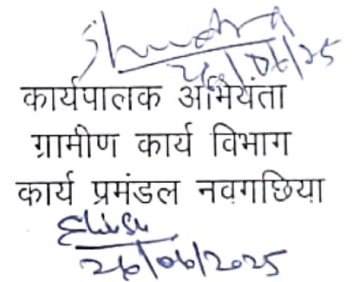 26/06/25
कार्यपालक अभियंता
ग्रामीण कार्य विभाग
कार्य प्रमंडल नवगछिया
26/06/2025